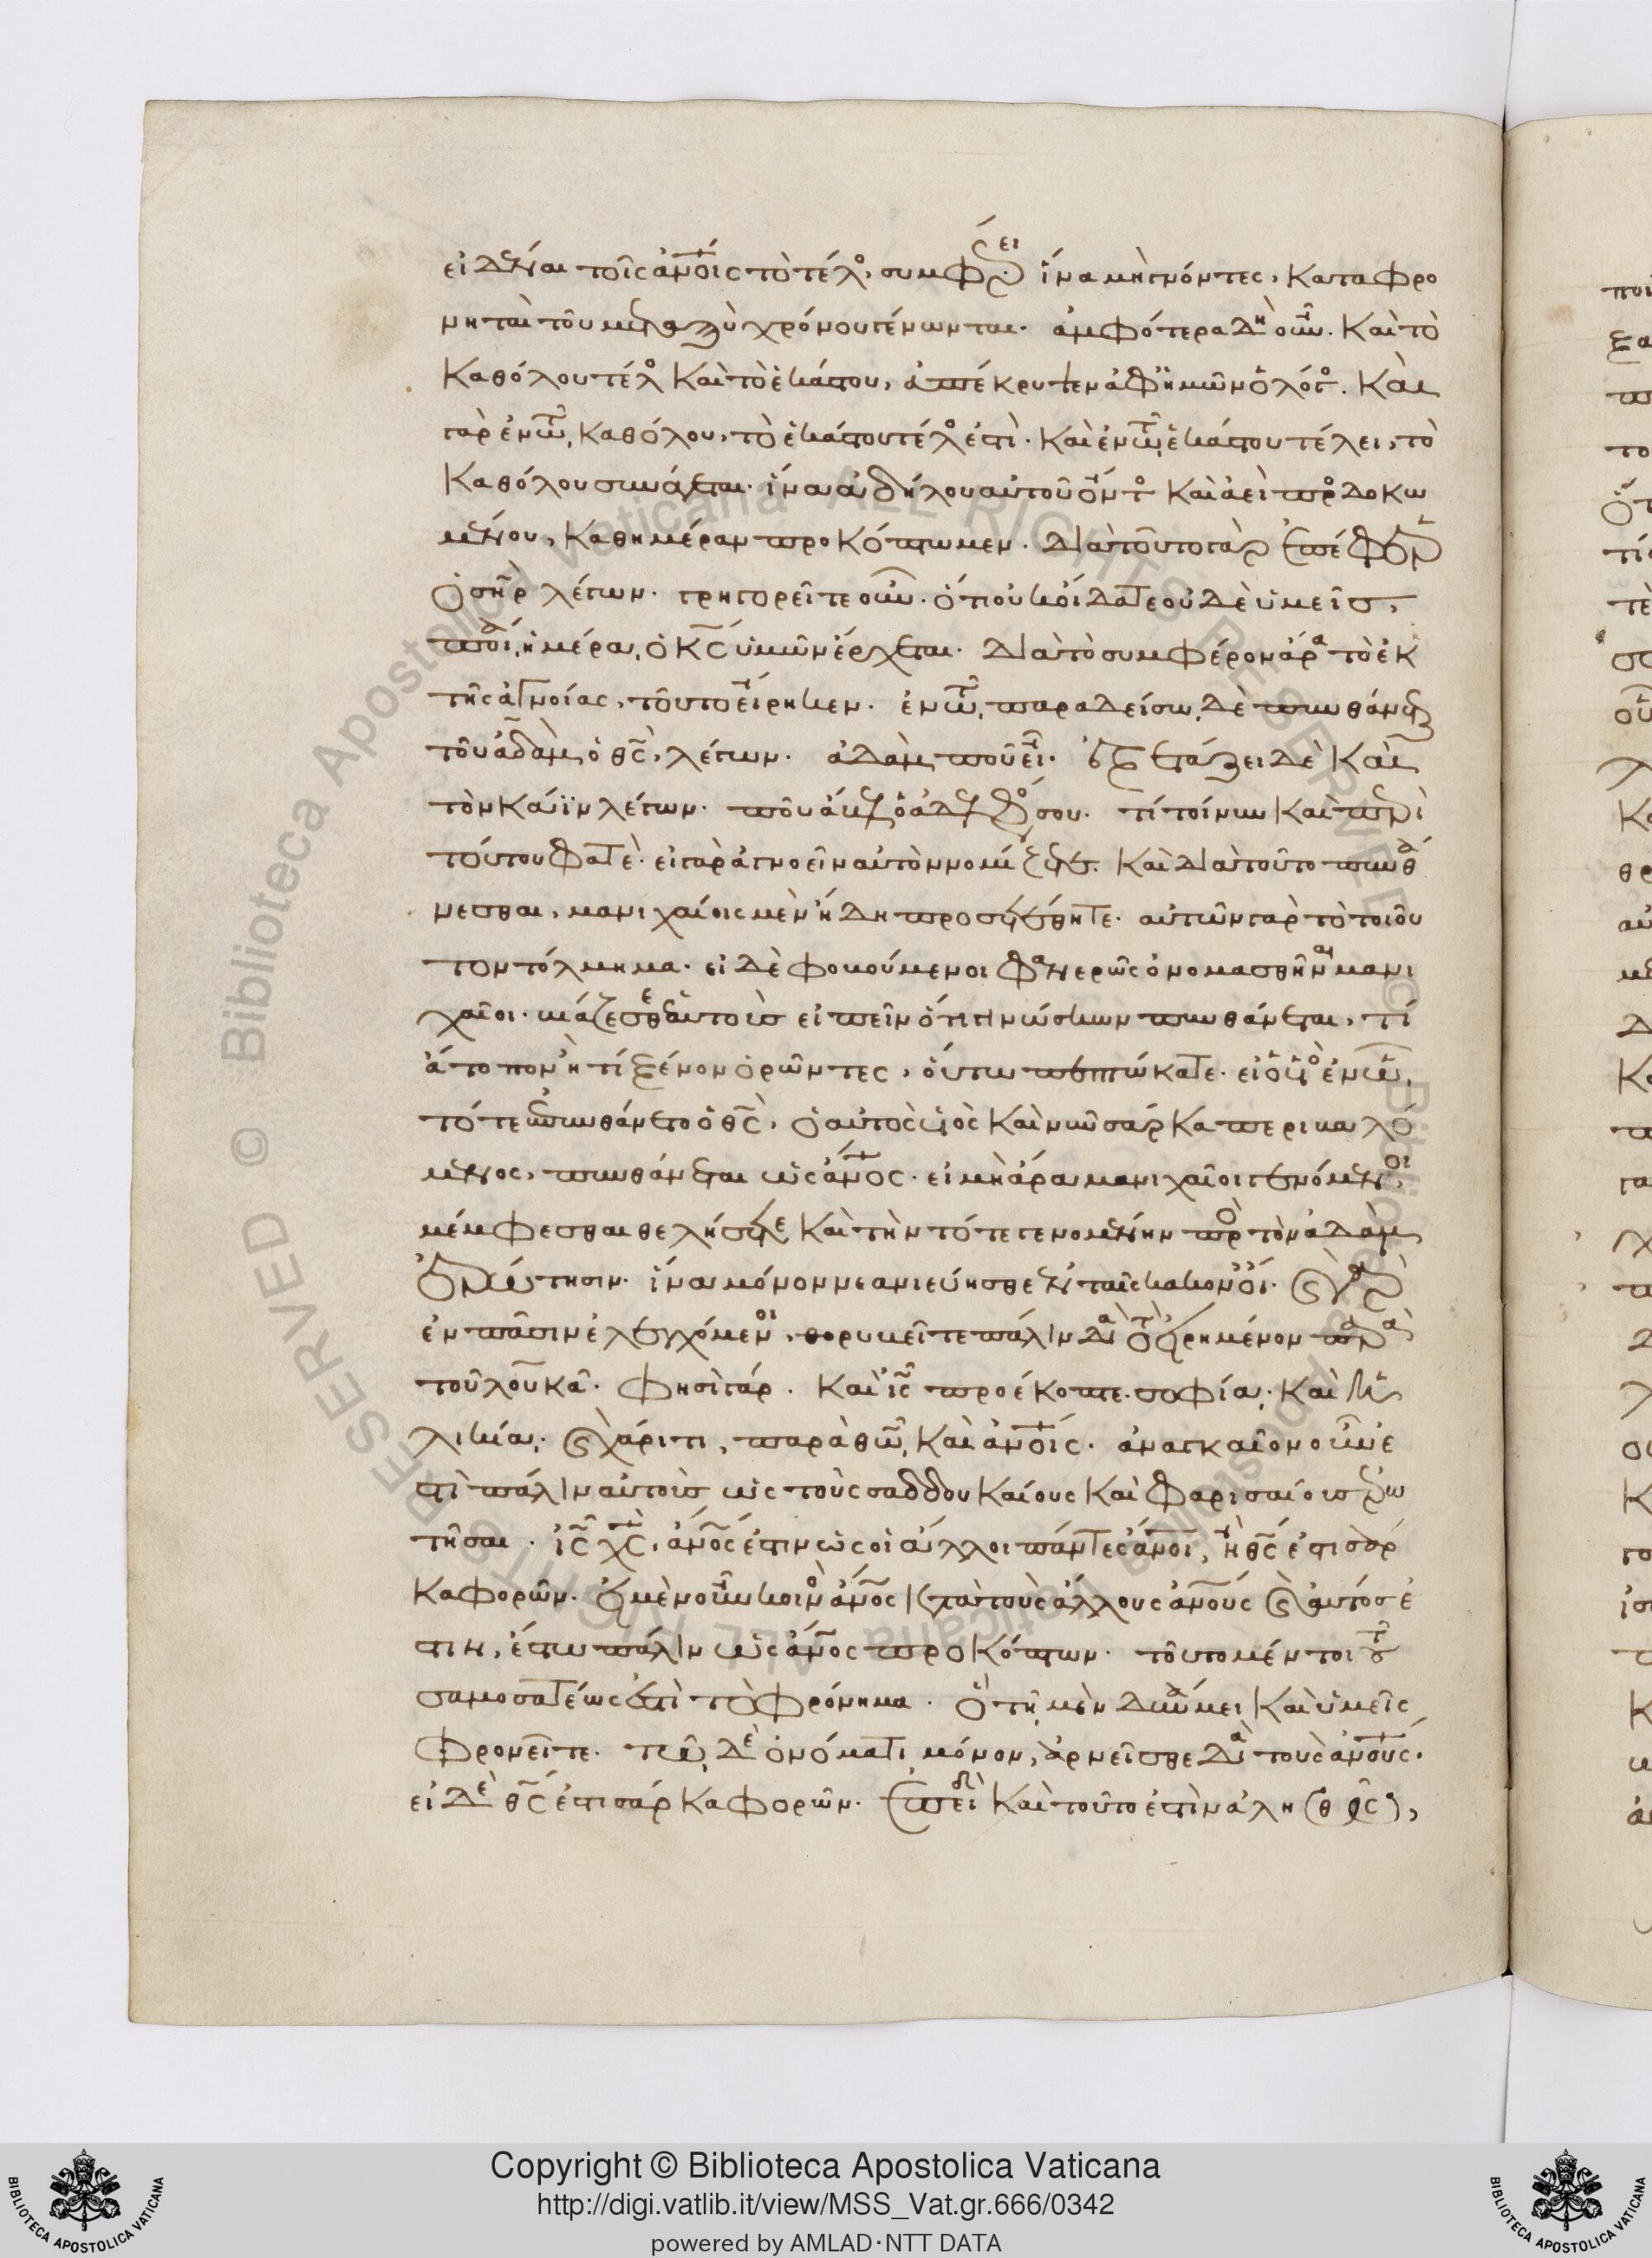 εἰδέναι τοῖς ἀνοις τὸ τέλος, συμφέρει ἵνα μὴ γνόντες, καταφρο
νηταὶ τοῦ μεταξὺ χρόνου γένωνται. ἀμφότερα δὴ οὖν. καὶ τὸ
καθόλου τέλος καὶ τὸ ἑκάστου, ἀπέκρυψεν ἀφ' ἡμῶν ὁ λόγος. καὶ
γὰρ ἐν τῷ καθόλου, τὸ ἑκάστου τέλος ἐστὶ. καὶ ἐν τῷ ἑκάστου τέλει, τὸ
καθόλου συνάγεται. ἵνα ἀδήλου αὐτοῦ ὄντος καὶ ἀεὶ προσδοκω
μένου, καθημέραν προκόπτωμεν. διὰ τοῦτο γὰρ ἐπέφερεν
ὁ σηρ λέγων. γρηγορεῖτε οὖν. ὅτι οὐκ οἴδατε οὐδὲ ὑμεῖς,
ποίᾳ ἡμέρᾳ ὁ κς ὑμῶν ἔρχεται. διὰ τὸ συμφέρον ἄρα τὸ ἐκ
τῆς ἀγνοίας, τοῦτο εἴρηκεν. ἐν τῷ παραδείσῳ δὲ πυνθάνεται
τοῦ ἀδὰμ ὁ θς, λέγων. ἀδὰμ ποῦ εἶ. ἐξετάζει δὲ καὶ
τὸν κάϊν λέγων. ποῦ ἄβελ ὁ ἀδελφός σου. τί τοίνυν καὶ περὶ
τούτου φατὲ. εἰ γὰρ ἀγνοεῖν αὐτὸν νομίζετε. καὶ διὰ τοῦτο πυνθά
νεσθαι, μανιχαίοις μὲν ἤδη προσετέθητε. αὐτῶν γὰρ τὸ τοιοῦ
τον τόλμημα. εἰ δὲ φοβούμενοι φανερῶς ὀνομασθῆναι μανι
χαῖοι. βιάζεσθε ἑαυτοὺς εἰπεῖν ὅτι γινώσκων πυνθάνεται, τί
ἄτοπον ἢ τί ξένον ὁρῶντες, οὕτω πεπτώκατε. εἰ ὁ υἱὸς ἐν ᾧ
τότε ἐπυνθάνετο ὁ θς, ὁ αὐτὸς υἱὸς καὶ νῦν σάρκα περιβαλλό
μενος, πυνθάνεται ὡς ἀνος. εἰ μὴ ἄρα μανιχαῖοι γενόμενοι,
μέμφεσθαι θελήσετε καὶ τὴν τότε γενομένην πρὸς τὸν ἀδὰμ
ἐρώτησιν. ἵνα μόνον νεανιεύησθε ἐν ταῖς κακονοίαις. καὶ γὰρ
ἐν πᾶσιν ἐλεγχόμενοι, θορυβεῖτε πάλιν διὰ τὸ εἰρημένον παρὰ
τοῦ λουκᾶ. φησὶ γάρ. καὶ ις προέκοπτε σοφίᾳ, καὶ ἡ
λικίᾳ, καὶ χάριτι, παρὰ θω, καὶ ἀνοις. ἀναγκαῖον οὖν ἐ
στὶ πάλιν αὐτοὺς ὡς τοὺς σαδδουκαίους καὶ φαρισαίους ἐρω
τῆσαι. ις χς, ἀνος ἐστιν ὡς οἱ ἄλλοι πάντες ἀνοι, ἢ θς ἐστι σάρ
κα φορῶν. εἰ μὲν οὖν κοινὸς ἀνος κατὰ τοὺς ἄλλους ἀνους καὶ αὐτός ἐ
στιν, ἔστω πάλιν ὡς ἀνος προκόπτων. τοῦτο μέντοι τοῦ
σαμοσατέως ἐστὶ τὸ φρόνημα. ὃ τῇ μὲν δυνάμει καὶ ὑμεῖς
φρονεῖτε. τῷ δὲ ὀνόματι μόνον, ἀρνεῖσθε διὰ τοὺς ἀνους.
εἰ δὲ θς ἐστι σάρκα φορῶν. ἐπεὶ καὶ τοῦτο ἐστὶν ἀληθὲς,
Copyright © Biblioteca Apostolica Vaticana
http://digi.vatlib.it/view/MSS_Vat.gr.666/0342
powered by AMLAD·NTT DATA